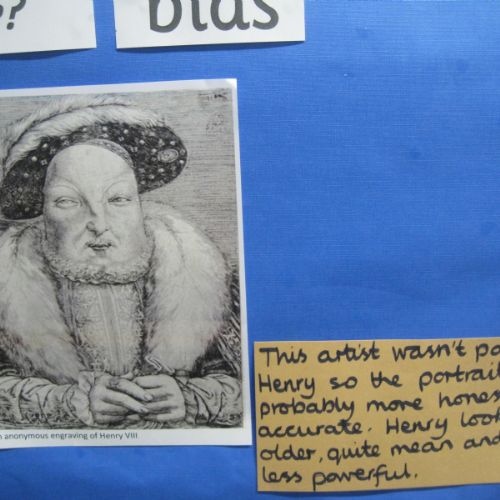 s?
bias
n anonymous engraving of Henry VIII
This artist wasn't pa
Henry so the portrait
probably more hones
accurate. Henry look
older, quite mean and
less powerful.